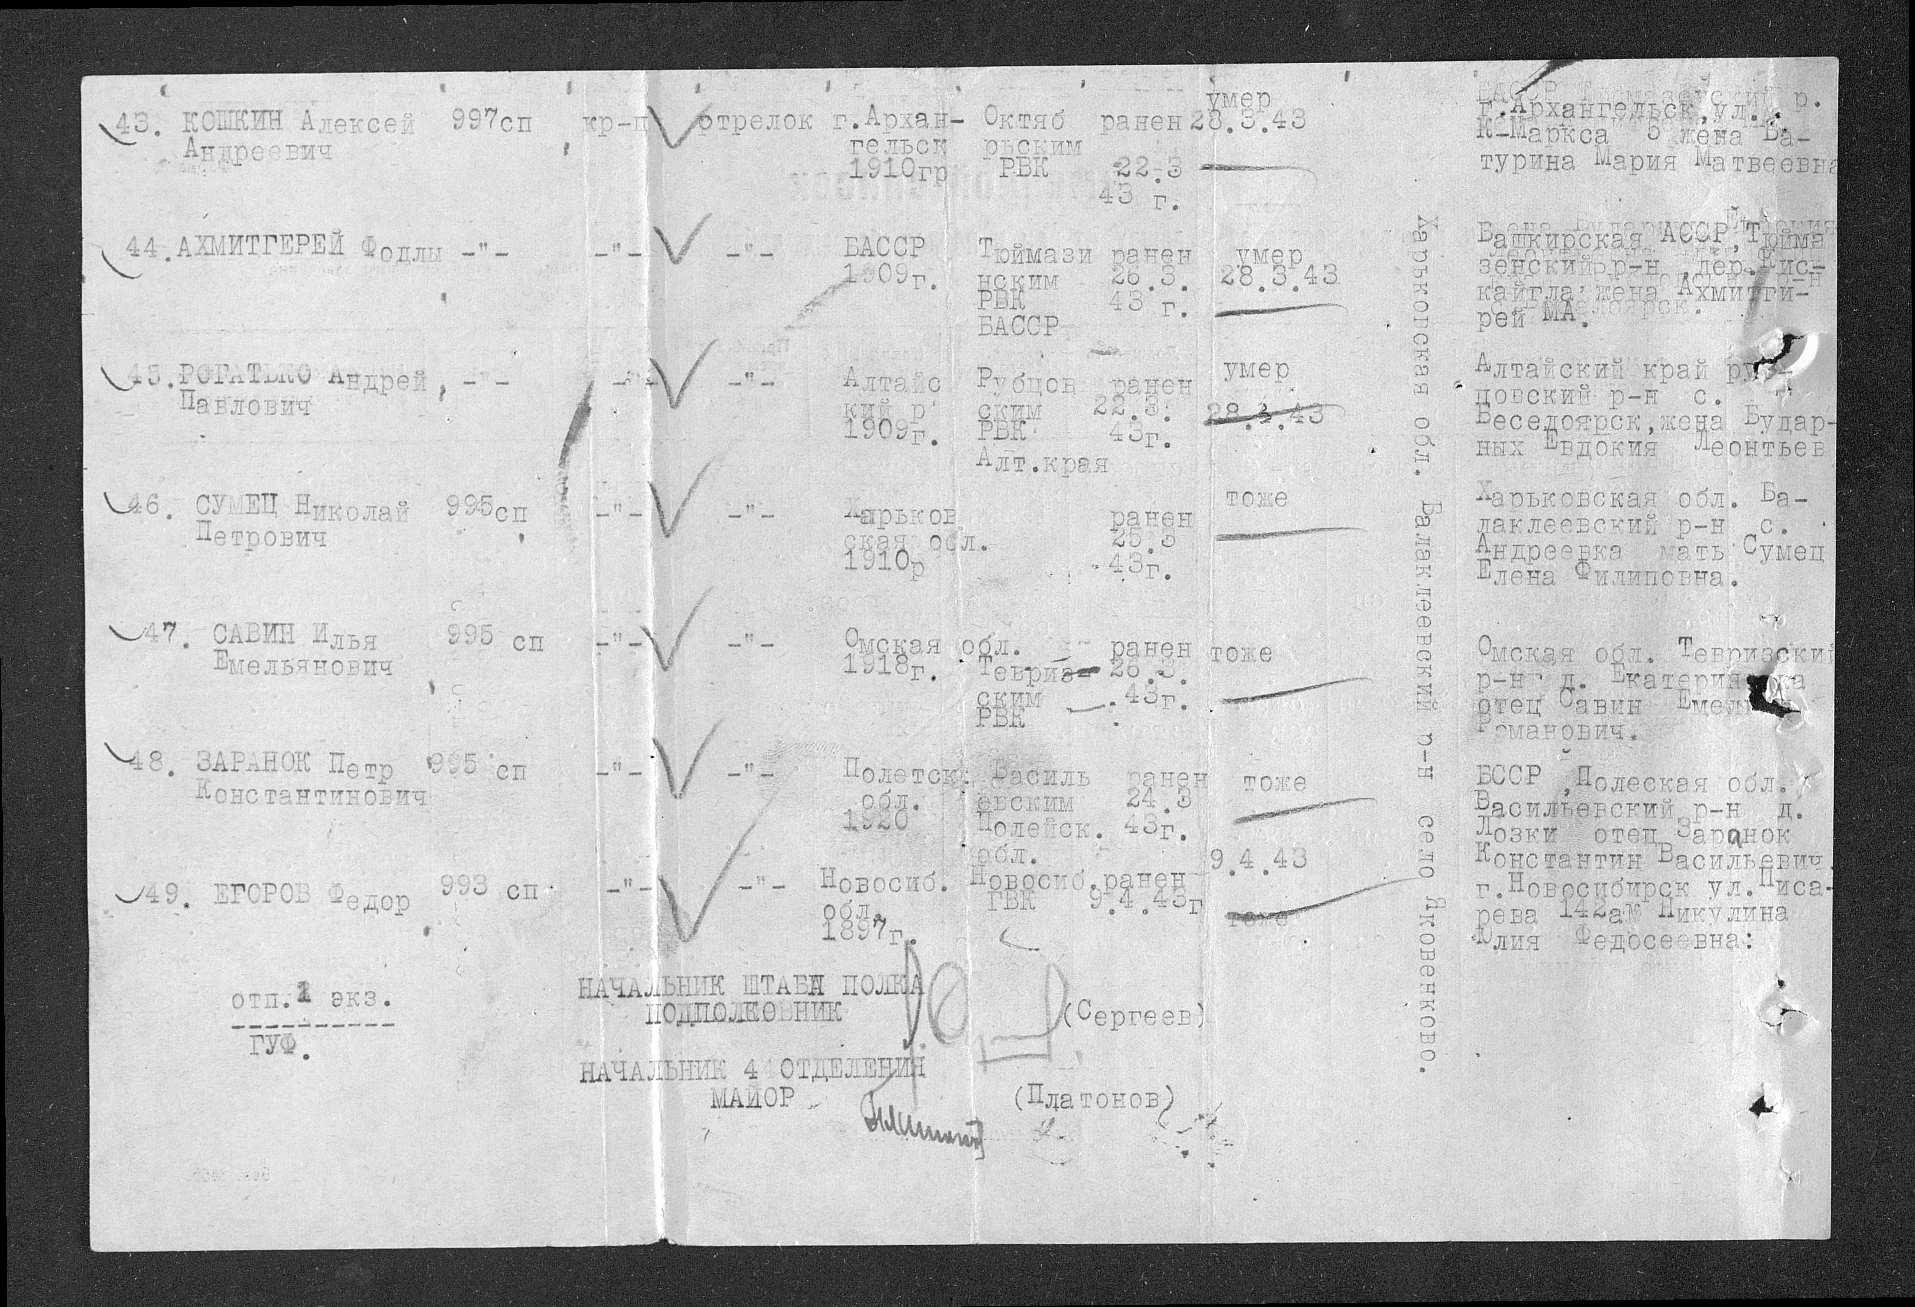 умер
43. КОШКИН Алексей 997сп кр-ц стрелок г.Архан- Октяб ранен 28.3.43 г.Архангельск,ул.
Андреевич гельск рьским К-Маркса 5 жена Ба-
1910гр РВК 22.3 турина Мария Матвеевна
43 г.
44. АХМИТГЕРЕЙ Фодлы -"- -"- -"- БАССР Тюймази ранен умер Башкирская АССР,Тюйма
1909г. нским 26.3. 28.3.43 зенский р-н дер.Кис-
РВК 43 г. кайгла жена Ахмитги-
БАССР рей МА.
45. РОГАТЬКО Андрей -"- -"- -"- Алтайс Рубцов ранен умер Алтайский край
Павлович кий р ским 22.3. 28.3.43 цовский р-н с.
1909г. РВК 43г. Беседоярск,жена Будар-
Алт.края ных Евдокия Леонтьев
46. СУМЕЦ Николай 995сп -"- -"- Харьков ранен тоже Харьковская обл. Ба-
Петрович ская обл. 25.3 лаклеевский р-н с.
1910р 43г. Андреевка мать Сумец
Елена Филиповна.
47. САВИН Илья 995 сп -"- -"- Омская обл. ранен тоже Омская обл. Тевризский
Емельянович 1918г. Тевриз- 26.3. р-н д.
ским 43г. отец Савин
РВК Романович.
48. ЗАРАНОК Петр 995 сп -"- -"- Полетск. Василь ранен тоже БССР ,Полеская обл.
Константинович обл. евским 24.3 Васильевский р-н д.
1920 Полейск. 43г. Лозки отец Заранок
обл. Константин Васильевич
9.4.43
49. ЕГОРОВ Федор 993 сп -"- -"- Новосиб. Новосиб.ранен г.Новосибирск ул.Писа-
обл. ГВК 9.4.43г тоже рева 142 Никулина
1897г. Юлия Федосеевна:
Харьковская обл. Балаклеевский р-н село Яковенково.
отп.1 экз.
ГУФ.
НАЧАЛЬНИК ШТАБА ПОЛКА
ПОДПОЛКОВНИК (Сергеев)
НАЧАЛЬНИК 4 ОТДЕЛЕНИЯ
МАЙОР (Платонов)